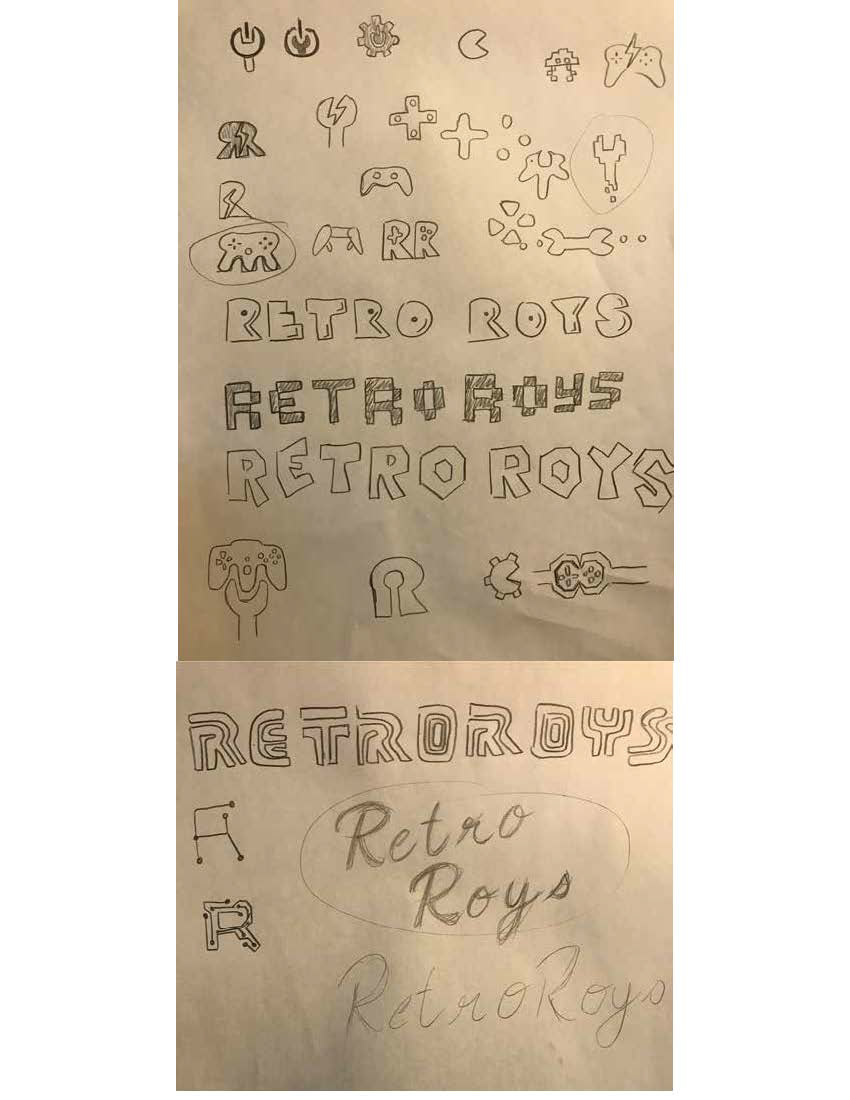 RR
R
RR
RETRO ROYS
RETRO ROYS
RETRO ROYS
R
RETROROYS
R
Retro
Roys
R
RetroRoys